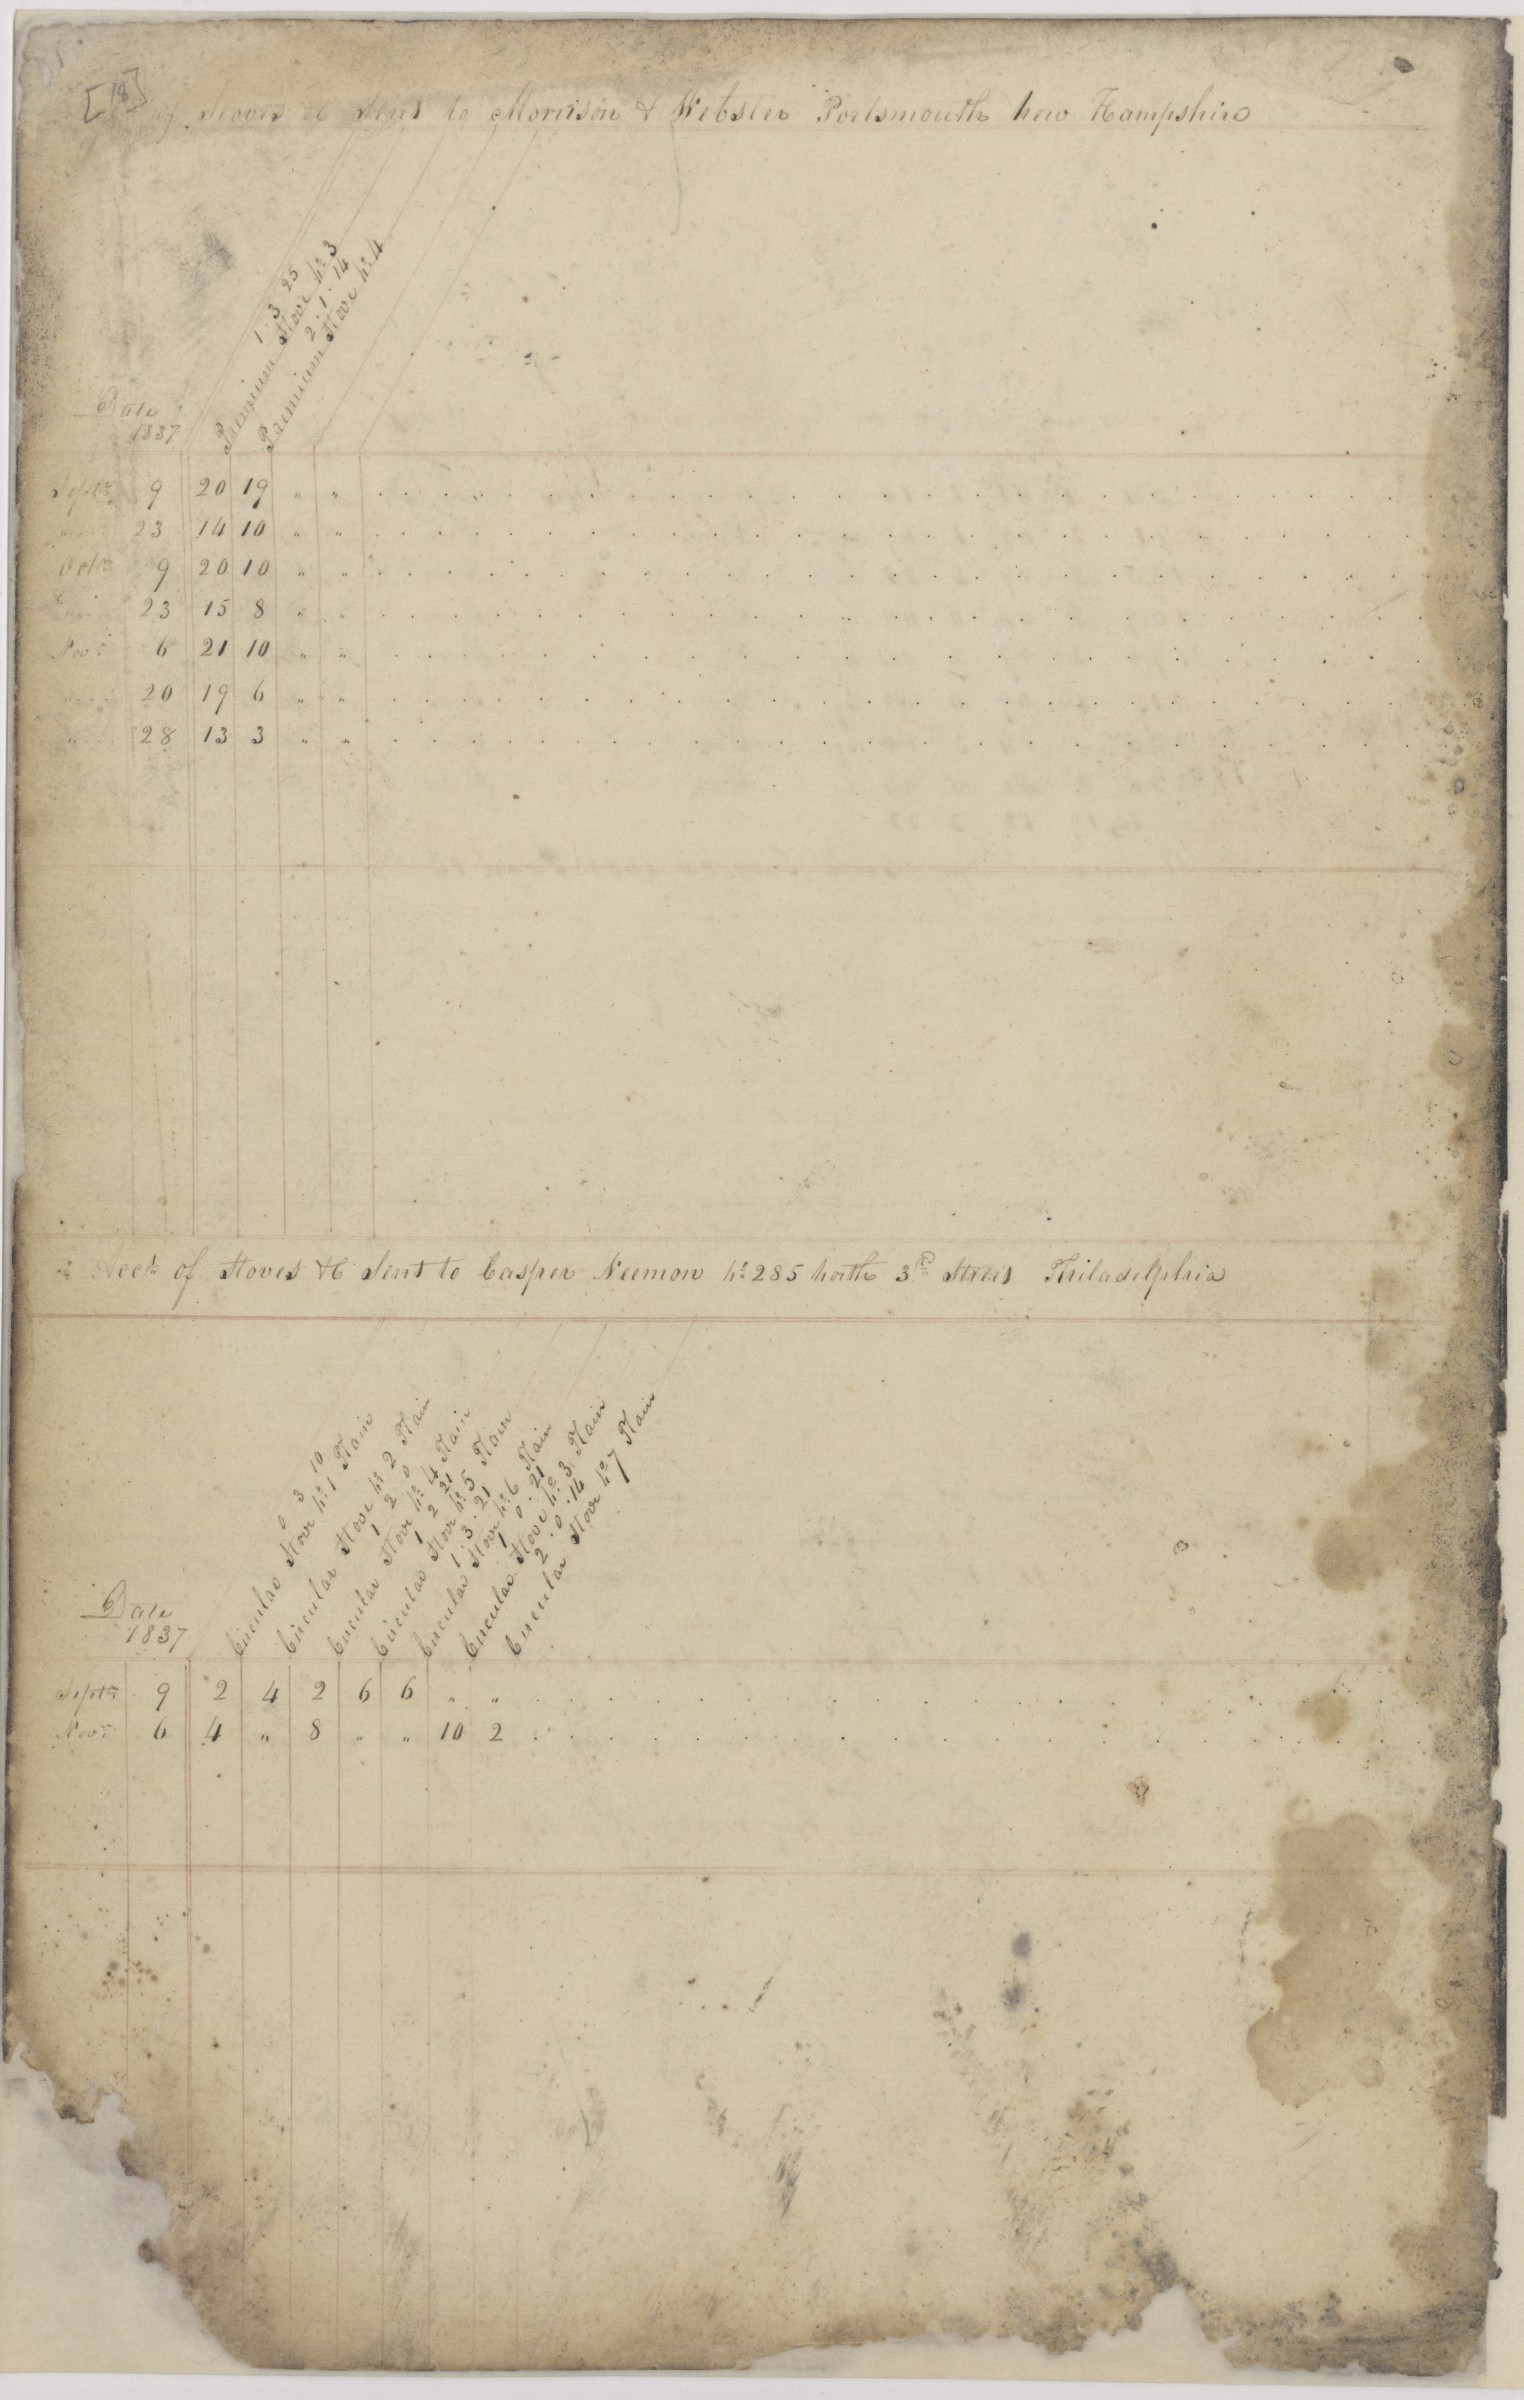 [18]
of Stoves &c Sent to Morrison & Webster Portsmouth New Hampshire
1 . 3 25
Premium Stove No 3
2 . 1 . 14
Premium Stove No 4
Date
1837
Septr 9 20 19 " "
" 23 14 10 " "
Octr 9 20 10 " "
" 23 15 8 " "
Novr 6 21 10 " "
" 20 19 6 " "
" 28 13 3 " "
Acct of Stoves &c Sent to Casper Neemon No 285 North 3rd Street Philadelphia
0 3 10
Circular Stove No 1 Plain
Circular Stove No 2 Plain
1 2 0
Circular Stove No 4 Plain
1 2 21
Circular Stove No 5 Plain
1 . 3 . 21
Circular Stove No 6 Plain
1 0 . 21
Circular Stove No 3 Plain
2 . 0 . 16
Circular Stove No 7 Plain
Date
1837
Septr 9 2 4 2 6 6 " "
Novr 6 4 " 8 " " 10 2